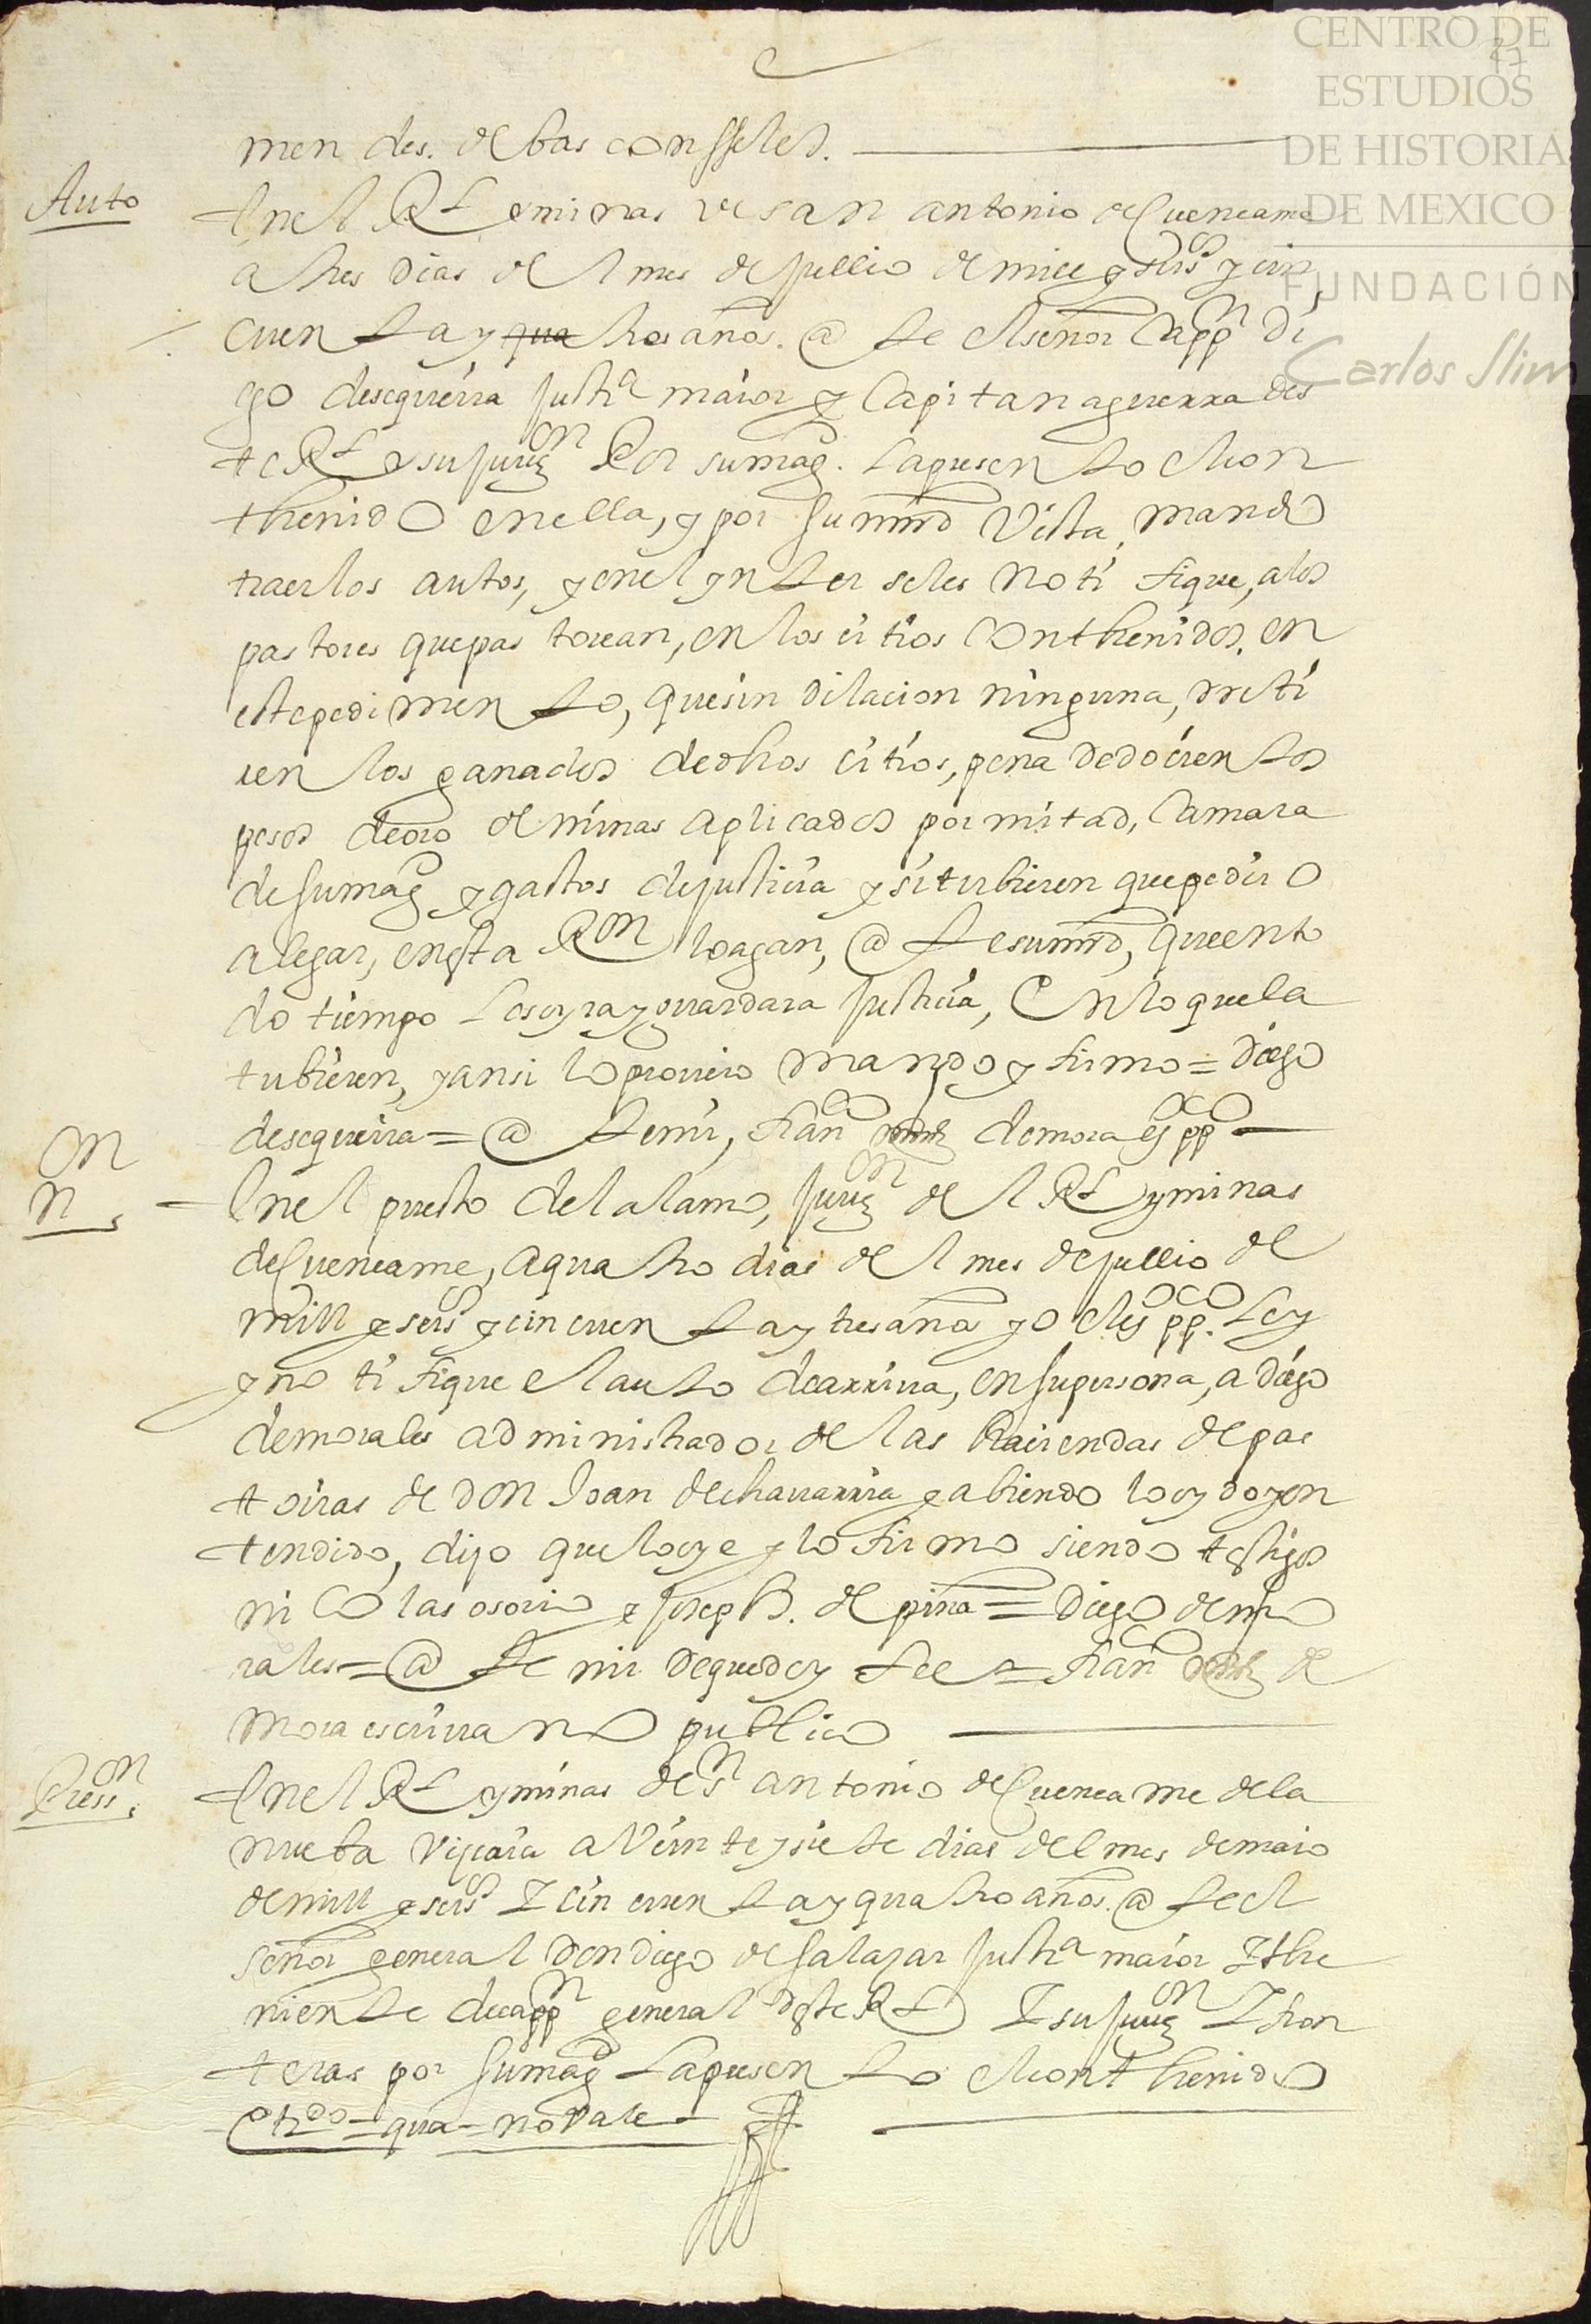 CENTRO DE
ESTUDIOS
DE HISTORIA
DE MEXICO
FUNDACIÓN
Carlos Slim
men des.
Auto
Enel Rl eminas de san antonio de Cuencame
a tres dias del mes de jullio de mill y seisos y cin
cuenta y qua tres años. @ te el señor Cappn Di
go desequeira justa maior y Capitan a guerra des
te Rl y su juron Por su magd. la presento el con
thenido en ella, y por su mrd Vista, mando
traer los autos, y en el ynter se les notifique, a los
pastores que pastorean, en los citios Conthenidos, en
este pedimento, que sin dilacion ninguna, rreti
ren los ganados de dhos citios, pena de docientos
pesos de oro de minas aplicados por mitad, Camara
de su magd y gastos de justicia y si tubieren que pedir o
alegar, en esta Ron lo agan, @ te su mrd, que en to
do tiempo los oyra y guardara justicia, En lo que la
tubieren, y ansi lo proveio mando y firmo = diego
desequeira = @ te mi, fran demora esppco
Non
Enel puesto del alamo, juron del Rl y minas
de Cuencame, a quatro dias del mes de jullio de
mill y seisos y cincuenta y tres años yo el esppco ley
y notifique el auto de arriva, en su persona, a diego
de morales administrador de las haciendas de pas
toiras de don Joan de chavarria y abiendolo oydo y en
tendido, dijo que lo oye y lo firmo siendo testigos
nicolas osorio y joseph. de pina = Diego de mo
rales = @ te mi de que doy fee = fran de
mora escrivano publico
Presson
Enel Rl y minas de Sn antonio de Cuencame de la
nueba viscaia a veinte y siete dias del mes de maio
de mill y seisos y cincuenta y quatro años. @ te el
señor general don diego de salazar justa maior y the
niente de cappn general deste Rl y su juron y fron
teras por su magd la presento el conthenido
etdo = qua = no vale